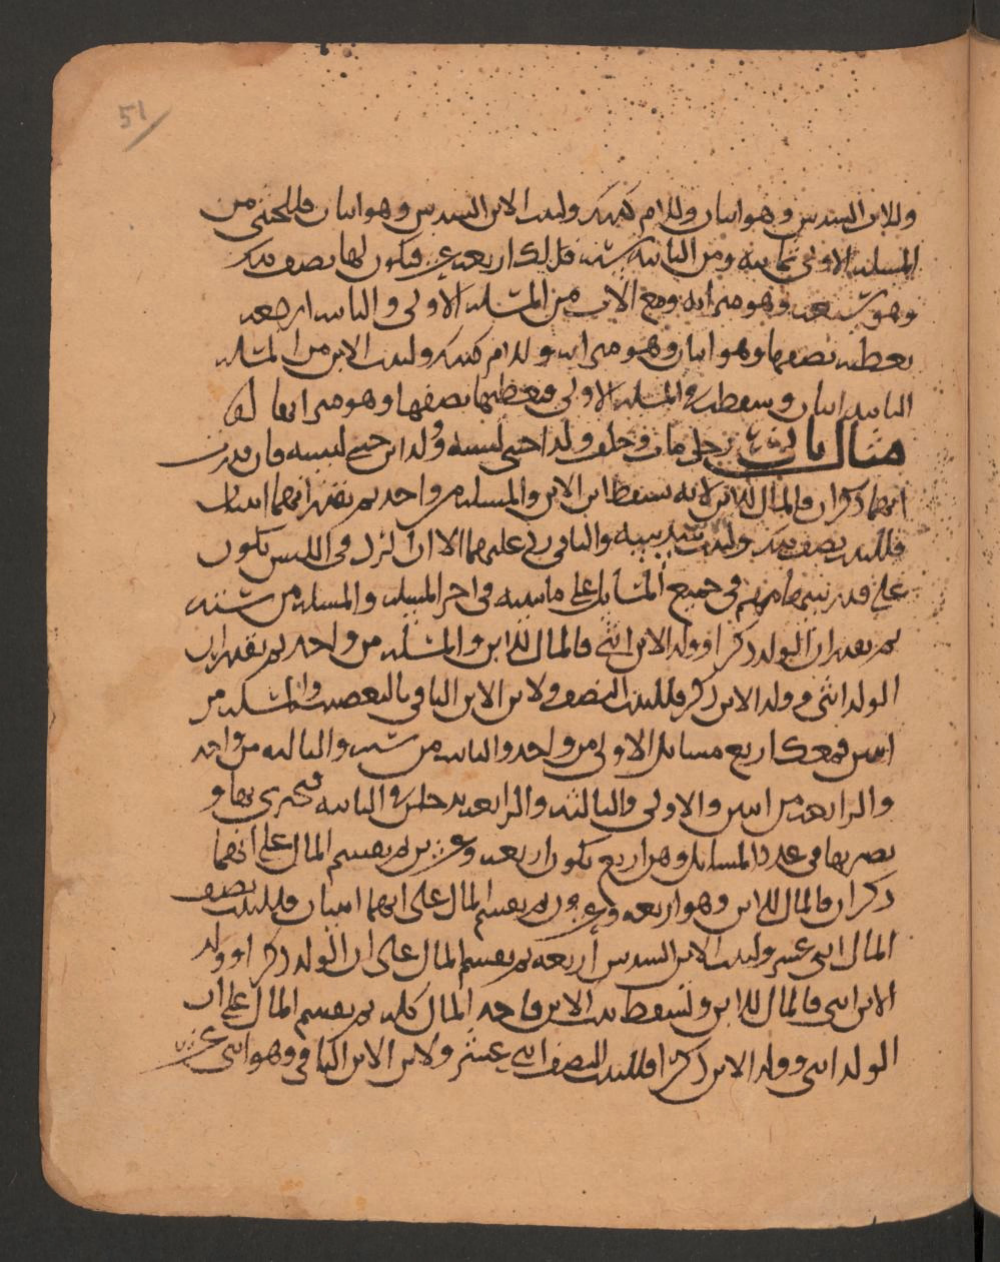 51
وللاب السدس وهو اثنان وللام كذلك ولبنت الابن السدس وهو اثنان فللخنثى من
المسله الاولى ثمانيه ومن الثانيه سته فذلك اربعه عشر فيكون لها نصف ذلك
وهو سبعه وهو ميراثه ومع الاب من المسله الاولى والثانيه اربعه
يعطيه نصفها وهو اثنان وهو ميراثه وللام كذلك ولبنت الابن من المسله
الثانيه اثنان وتسقط في المسله الاولى فتعطيها نصفها وهو ميراثها
مثال ثان رجل مات وخلف ولدا خنثى لبسه وولد ابن خنثى لبسه فان قدرت
انهما ذكران فالمال للابن لانه يسقط ابن الابن والمسله من واحد ثم تقدر انهما انثيان
فللبنت نصف ولبنت والباقي رد عليهما الا ان الرد في اللبس يكون
على قدر سهامهم في جميع المسائل على ما نبينه في اخر المسله والمسله من سته
ثم تقدر ان الولد ذكر وولد الابن انثى فالمال للابن والمسله من واحد ثم تقدر ان
الولد انثى وولد الابن ذكر فللبنت النصف ولابن الابن الباقي بالتعصيب والمسله من
اثنين فمعك اربع مسائل الاولى من واحد والثانيه من سته والثالثه من واحد
والرابعه من اثنين والاولى والثالثه والرابعه يدخلن في الثانيه فتجزى بها و
تضربها في عدد المسائل وهن اربع تكون اربعه وعشرين ثم يقسم المال على انهما
ذكران فالمال للابن وهو اربعه وعشرون ثم يقسم المال على انهما انثيان فللبنت نصف
المال اثنى عشر ولبنت الابن السدس اربعه ثم يقسم المال على ان الولد ذكرا وولد
الابن انثى فالمال للابن وتسقط بنت الابن فاحد المال كله ثم يقسم المال على ان
الولد انثى وولد الابن ذكرا فللبنت النصف اثنى عشر ولابن الابن الباقي وهو اثنى عشر